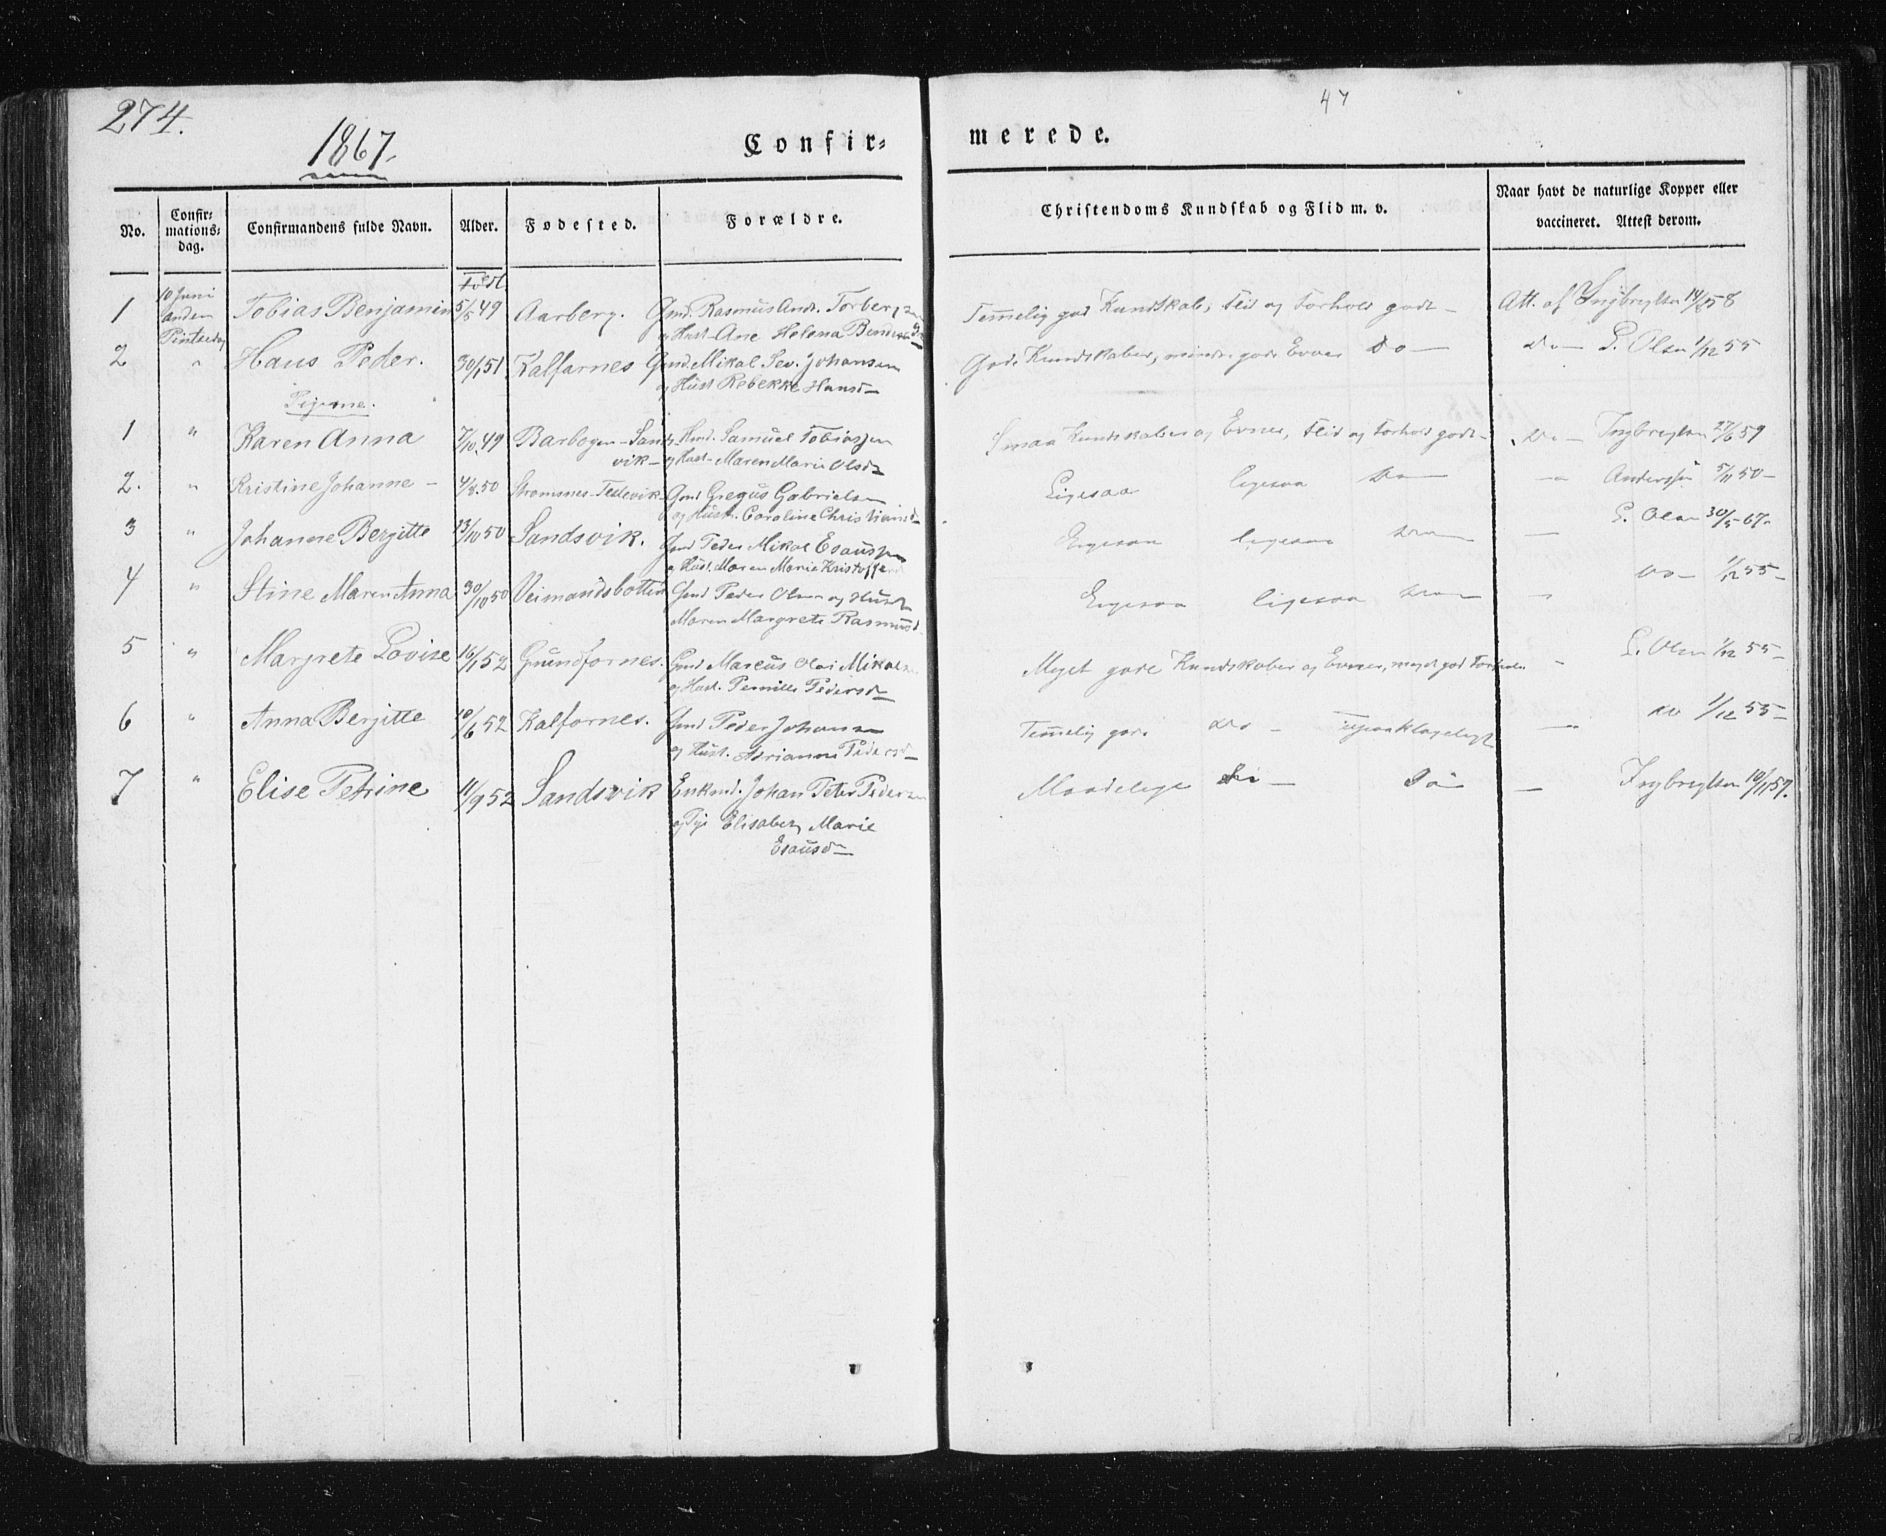 274.
47
1867.
Confir-
merede.
No.
Confir-
mations-
dag.
Confirmandens fulde Navn.
Alder.
Fødested.
Forældre.
Christendoms Kundskab og Flid m. v.
Naar havt de naturlige Kopper eller
vaccineret. Attest derom.
Født
1 10 Juni Tobias Benjamin 5/5 49 Aarberg. Gmd. Rasmus And. Torbergs
anden og Hust. Ane Helena
Pintsedag
Temmelig god Kundskab, Flid og Forhold godt - Att. af
2 " Hans Peder. 30/1 51 Kalfarnes Gmd. Mikal Sev. Johansen
og Hust Rebekke Hansd
Gode Kundskaber, mindre gode Evner do - do - P. Olsen 1/12 55
Pigerne.
1 " Karen Anna 7/10 49 Barbogen - Sands Hmd. Samuel Tobiassen
vik - og Hust. Maren Marie Olsd
Smaa Kundskaber og Evner, Flid og Forhold godt - do - Ingbregtsen 27/6 59
2. " Kristine Johanne - 4/8 50 Strømsnes - Gmd Gregus Gabrielsen
og Hustr. Caroline Christiansd
Ligesaa ligesaa - Anderssen 5/11 50 -
3 " Johanne Bergitte 13/10 50 Sandsvik. Gmd Peder Mikal Esaussen
og Hust. Maren Marie
Ligesaa ligesaa - P. Olsen 30/5 67.
4 " Stine Maren Anna 30/10 50 Veimandsbotten Gmd Peder Olsen og Hust
Maren Margrete Rasmusd
Ligesaa ligesaa - do - 1/12 55 -
5 " Margrete Lovise 16/1 52 Grundfornes. Gmd Marcus Olai Mikals
og Hust. Pernille Pedersd
Meget gode Kundskaber og Evner, meget god Forhold - P. Olsen 1/12 55 -
6 " Anna Bergitte 10/6 52 Kalfornes. Gmd Peder Johansen
og Hust. Adrianna Pedersd
Temmelig gode do - upaaklageligt - do 1/12 55 -
7 " Elise Petrine 11/9 52 Sandsvik Enkmd. Johan Peter Peders
og Pige Elisabet Marie
Esausd
Maadelige do - do - Ingbregtsen 10/11 57.